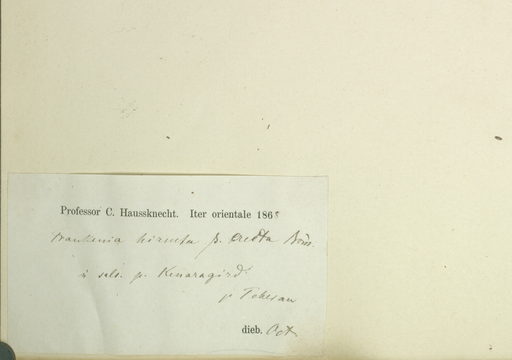 Professor C. Haussknecht. Iter orientale 1868
Frankenia hirsuta β. erecta Boiss.
in sals. p. Kenaragird
p. Teheran
dieb. Oct.